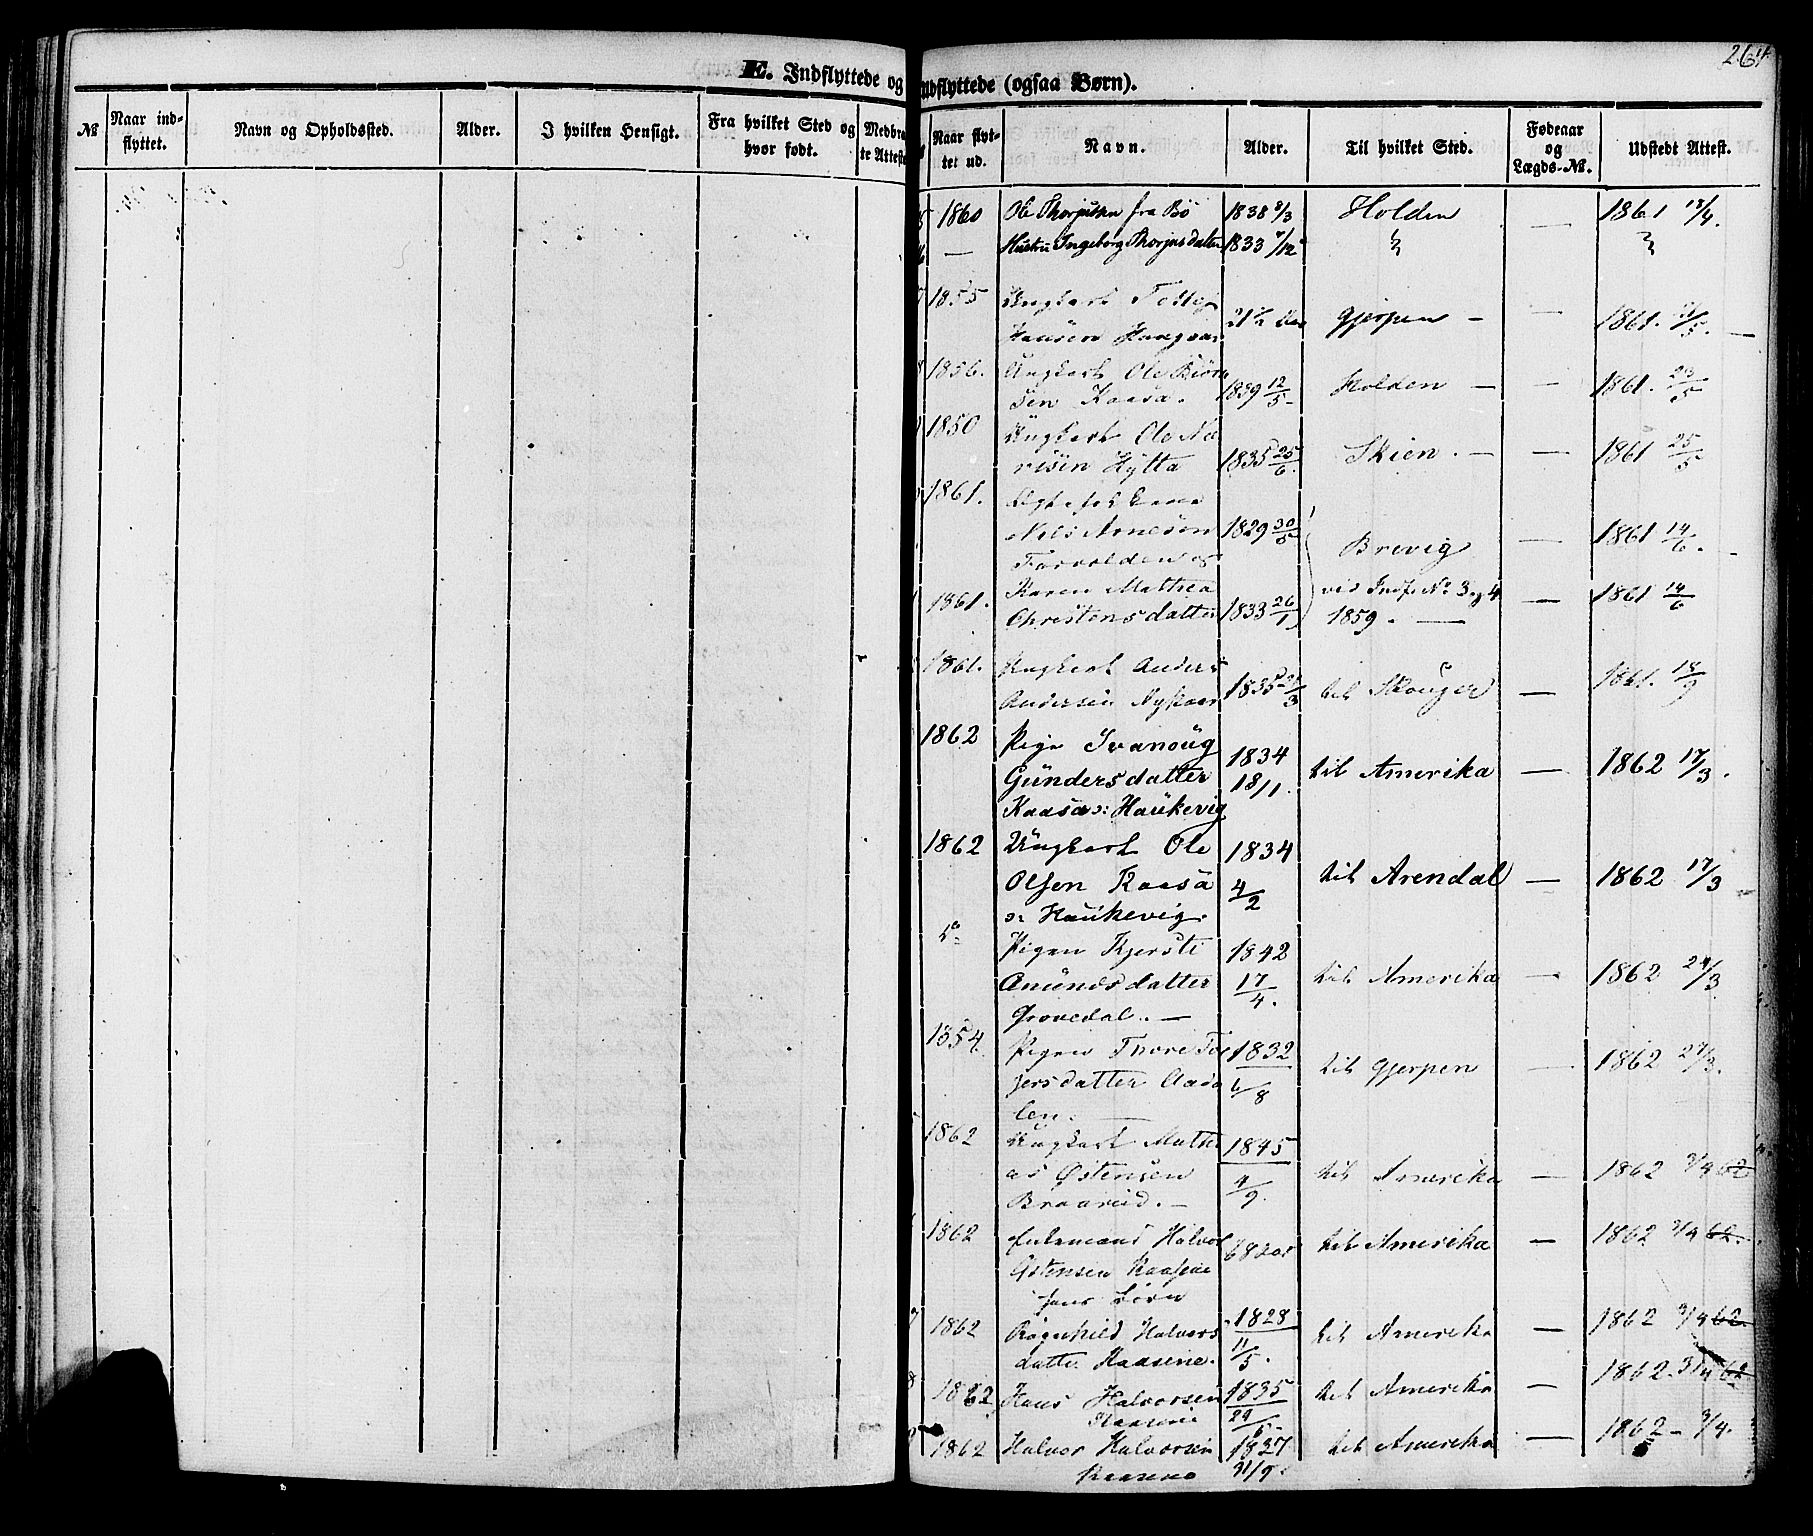 264.
E. Indflyttede og
Udflyttede (ogsaa Børn).
№
Naar ind-
flyttet.
Navn og Opholdssted.
Alder.
I hvilken Hensigt.
Fra hvilket Sted og
hvor født.
Medbra
te Atteste
Naar flyt-
tet ud.
Navn.
Alder.
Til hvilket Sted.
Fødeaar
og
Lægds-№.
Udstedt Attest.
5 1860 Ole Thorjusen fra Bø 1838 8/3 Holden — 1861 18/4.
6 — Hustru Ingeborg Thorjusdatter 1833 /12
7 1855 Ungkarl
Hansen 21 1/2 Aar Gjerpen — — 1861. /5. —
8 1856. Ungkarl Ole Biørn
sen Kaasa. 1839 12/5 — Holden — — 1861. 23/5
1850 Ungkarl Ole Na
risen Hytta 1835 25/6. Skien. — — 1861 25/5
1861.
Nels Arnesen 1829 30/5 Brevig — 1861 14/6. —
og
1861. Karen Mathea vid Indf. No 3 og 4
Christensdatter 1833 26/1 1859. — — 1861 14/6
1861. Ungkarl Anders
Andersen 1835 /3 til Skouger — 1861. 18/9
1862 Pige Ivanoug
Gundersdatter 1834 18/1. til Amerika — 1862 17/3.
Kaasa ɔ: Haukevig
1862 Ungkarl Ole 1834
Olsen Kaasa 4/2 til Arendal — 1862 17/3
ɔ: Haukevig.
do Pigen Kjersti 1842
Amundsdatter 17/4. til Amerika — 1862 24/3
Grovedal. —
1854. Pigen Thore Tol 1832
jersdatter Aase 6/8 til Gjerpen — 1862 27/3.
len. —
1862 Ungkarl Mathi 1845
as Østensen 4/9. til Amerika — 1862 3/4 62
Braareid. —
1862 Enkemand Halvor 68 aar til Amerika — 1862 3/4 62.
Østensen Kaasene
hans Børn
7 1862 Rognehild Halvors 1828
datter Kaasene. 11/5. til Amerika — 1862 3/4 62.
8 1862 Hans Halvorsen 1835 til Amerika — 1862. 3/4 62
Kaasene 29/6 —
9 1862 Halvor Halvorsen 1837 til Amerika — 1862 — 3/4.
Kaasene 31/9.